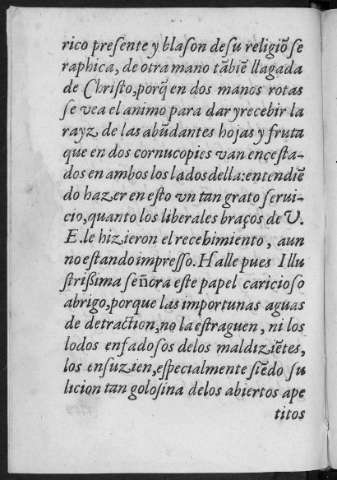 rico presente y blason de su religiõ se
raphica, de otra mano tãbiẽ llagada
de Christo, porq̃ en dos manos rotas
se vea el animo para dar y recebir la
rayz de las abũdantes hojas y fruta
que en dos cornucopies van ençesta-
dos en ambos los lados della: entendiẽ
do hazer en esto vn tan grato serui-
cio, quanto los liberales braços de V.
E. le hizieron el recebimiento, aun
no estando impresso. Halle pues Illu
strissima señora este papel caricioso
abrigo, porque las importunas aguas
de detraction, no la estraguen, ni los
lodos enfadosos delos maldiziẽtes,
los ensuzien, especialmente siẽdo su
licion tan golosina delos abiertos ape
titos